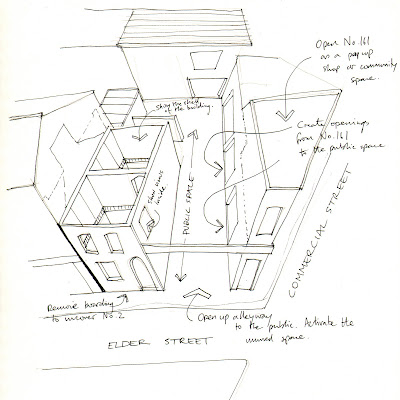 Open No.161
as a pop up
shop or community
space.
Show the shell
of the building.
Create openings
from No.161
to the public space
inside
PUBLIC SPACE
COMMERCIAL STREET
Remove boarding
to uncover No.2
Open up alleyway
to the public. Activate the
unused space.
ELDER STREET